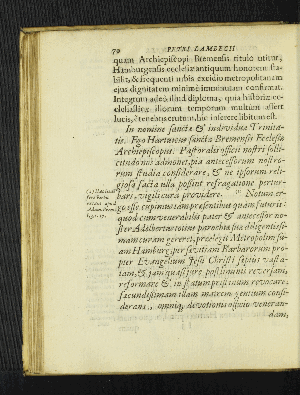 70 PETRI LAMBECII
quam Archiepiscopi Bremensis titulo utitur,
Hamburgensis ecclesiæ antiquum honorem sta-
bilit, & frequenti urbis excidio metropolitanam
ejus dignitatem minimè imminutam confirmat.
Integrum adeò illud diploma, quia historiæ ec-
clesiasticæ illorum temporum multum affert
lucis, è tenebris erutum, hic inferere libitum est.
In nomine sanctæ & individuæ Trinita-
tis. Ego Hartwicus sanctæ Bremensis Ecclesiæ
Archiepiscopus. Pastoralis officii nostri solli-
citudo nos admonet, pia antecessorum nostro-
rum studia considerare, & ne ipsorum reli-
giosa facta ulla possint refragatione pertur-
bari, vigili cura providere. Notum er-
go esse cupimus tam præsentibus quàm futuris:
quod cum venerabilis pater & antecessor no-
ster Adalbertus totius parochiæ sua diligentissi-
mam curam gereret, præelegit Metropolim su-
am Hamburg, per sævitiam Barbarorum pro-
pter Evangelium Jesu Christi sepius vasta-
tam, & jam quasi jure postliminii reversam,
reformare & in statum pristinum revocare,
fecundissimam illam matrem gentium consi-
derans, omniq; devotionis ejus veneran-
dam,